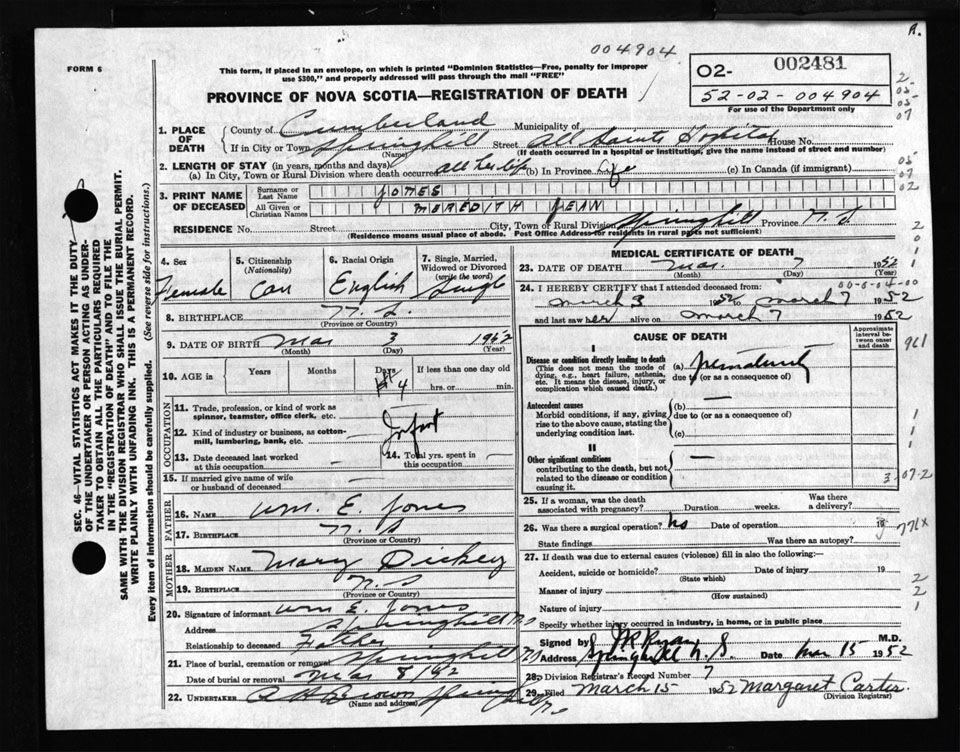 004904
R.
FORM 6
This form, if placed in an envelope, on which is printed "Dominion Statistics—Free, penalty for improper
use $300," and properly addressed will pass through the mail "FREE"
O2- 002481
52-02-004904
For use of the Department only
PROVINCE OF NOVA SCOTIA—REGISTRATION OF DEATH
1. PLACE OF DEATH
County of Cumberland Municipality of
If in City or Town Springhill Street All Saints Hospital House No.
(Name) (If death occurred in a hospital or institution, give the name instead of street and number)
2. LENGTH OF STAY (in years, months and days)
(a) In City, Town or Rural Division where death occurred all her life (b) In Province Life (c) In Canada (if immigrant)
3. PRINT NAME OF DECEASED
Surname or Last Name JONES
All Given or Christian Names MEREDITH JEAN
RESIDENCE No. Street City, Town or Rural Division Springhill Province N.S.
(Residence means usual place of abode. Post Office Address for residents in rural parts not sufficient)
4. Sex Female
5. Citizenship (Nationality) Can
6. Racial Origin English
7. Single, Married, Widowed or Divorced (write the word) Single
8. BIRTHPLACE N.S.
(Province or Country)
9. DATE OF BIRTH Mar 3 1952
(Month) (Day) (Year)
10. AGE in Years Months Days 4 If less than one day
hrs. or min.
OCCUPATION
11. Trade, profession, or kind of work as spinner, teamster, office clerk, etc. —
12. Kind of industry or business, as cotton-mill, lumbering, bank, etc. — Infant
13. Date deceased last worked at this occupation —
14. Total yrs. spent in this occupation —
15. If married give name of wife or husband of deceased —
FATHER
16. NAME Wm. E. Jones
17. BIRTHPLACE N.S
(Province or Country)
MOTHER
18. MAIDEN NAME Mary Dickey
19. BIRTHPLACE N.S
(Province or Country)
20. Signature of informant Wm E. Jones
Address Springhill NS
Relationship to deceased Father
21. Place of burial, cremation or removal Springhill NS
Date of burial or removal Mar 8/52
22. UNDERTAKER Brown Springhill
(Name and address)
MEDICAL CERTIFICATE OF DEATH
23. DATE OF DEATH Mar. 7 1952
(Month) (Day) (Year)
24. I HEREBY CERTIFY that I attended deceased from:
March 3 1952 to March 7 1952
and last saw her alive on March 7 1952
CAUSE OF DEATH
Approximate interval between onset and death
I
Disease or condition directly leading to death
(This does not mean the mode of dying, e.g., heart failure, asthenia, etc. It means the disease, injury, or complication which caused death.)
(a) Prematurity
due to (or as a consequence of)
Antecedent causes
Morbid conditions, if any, giving rise to the above cause, stating the underlying condition last.
(b) —
due to (or as a consequence of)
(c)
II
Other significant conditions
contributing to the death, but not related to the disease or condition causing it. —
25. If a woman, was the death associated with pregnancy? Duration weeks. Was there a delivery?
26. Was there a surgical operation? no Date of operation 19
State findings Was there an autopsy?
27. If death was due to external causes (violence) fill in also the following:—
Accident, suicide or homicide? Date of injury 19
(State which)
Manner of injury
(How sustained)
Nature of injury
Specify whether injury occurred in industry, in home, or in public place
Signed by J R Ryan M.D.
Address Springhill N.S. Date Mar 15 1952
28. Division Registrar's Record Number 7
29. Filed March 15 1952 Margaret Carter.
(Division Registrar)
SEC. 46—VITAL STATISTICS ACT MAKES IT THE DUTY
OF THE UNDERTAKER OR PERSON ACTING AS UNDER-
TAKER TO OBTAIN ALL THE PARTICULARS REQUIRED
IN THE "REGISTRATION OF DEATH" AND TO FILE THE
SAME WITH THE DIVISION REGISTRAR WHO SHALL ISSUE THE BURIAL PERMIT.
WRITE PLAINLY WITH UNFADING INK. THIS IS A PERMANENT RECORD.
Every item of information should be carefully supplied. (See reverse side for instructions.)